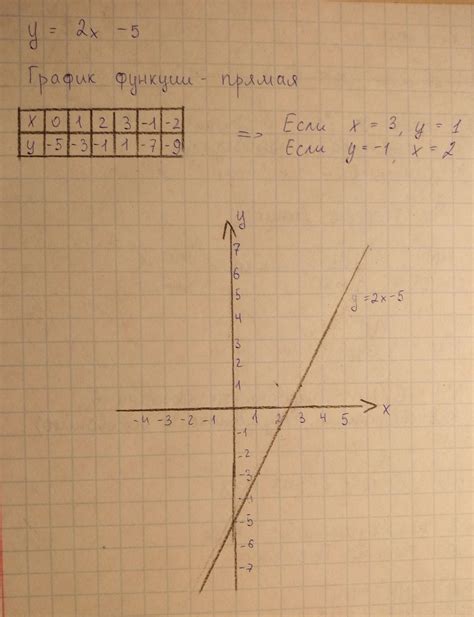 y = 2x -5
График функции - прямая
x 0 1 2 3 -1 -2
y -5 -3 -1 1 -7 -9
=> Если x = 3, y = 1
Если y=-1, x = 2
y
7
6
5
4
3
2
1
y=2x-5
-4 -3 -2 -1 1 2 3 4 5 x
-1
-2
-3
-4
-5
-6
-7